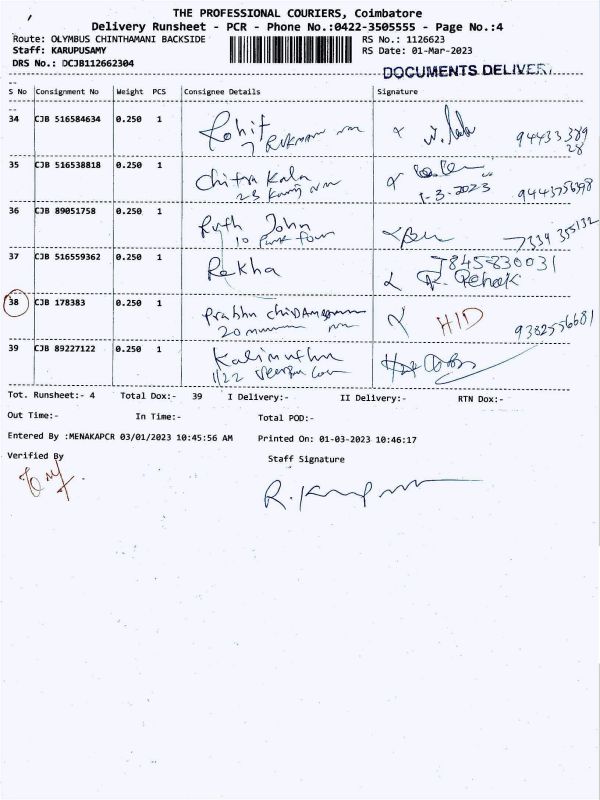 THE PROFESSIONAL COURIERS, Coimbatore
Delivery Runsheet - PCR - Phone No.:0422-3505555 - Page No.:4
Route: OLYMBUS CHINTHAMANI BACKSIDE RS No.: 1126623
Staff: KARUPUSAMY RS Date: 01-Mar-2023
DRS No.: DCJB112662304 DOCUMENTS DELIVERY
S No Consignment No Weight PCS Consignee Details Signature
34 CJB 516584634 0.250 1 Rohit
94433389
28
35 CJB 516538818 0.250 1 Chitra Kala
1-3-2023 9443756398
36 CJB 89051758 0.250 1 Ruth John
10 7339 355132
37 CJB 516559362 0.250 1 Rekha 7845830031
38 CJB 178383 0.250 1 Prabhu Chidambaram HID
20 9382556681
39 CJB 89227122 0.250 1 Kalimuthu
1/22
Tot. Runsheet:- 4 Total Dox:- 39 I Delivery:- II Delivery:- RTN Dox:-
Out Time:- In Time:- Total POD:-
Entered By :MENAKAPCR 03/01/2023 10:45:56 AM Printed On: 01-03-2023 10:46:17
Verified By Staff Signature